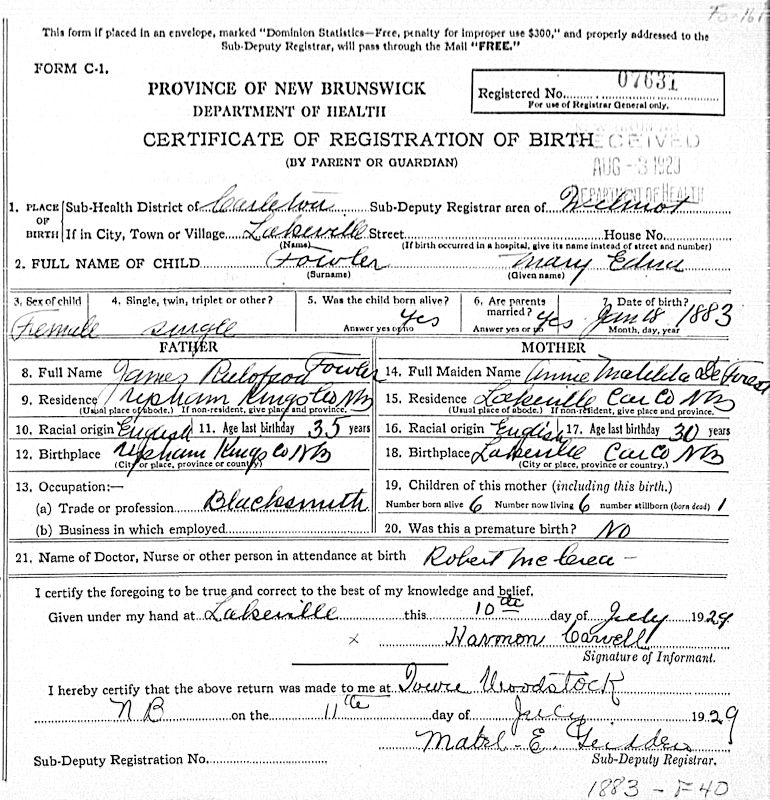 This form if placed in an envelope, marked "Dominion Statistics—Free, penalty for improper use $300," and properly addressed to the
Sub-Deputy Registrar, will pass through the Mail "FREE."
FORM C-1.
PROVINCE OF NEW BRUNSWICK
DEPARTMENT OF HEALTH
Registered No. 07631
For use of Registrar General only.
CERTIFICATE OF REGISTRATION OF BIRTH
(BY PARENT OR GUARDIAN)
RECEIVED
AUG -3 1929
DEPARTMENT OF HEALTH
1. PLACE OF BIRTH Sub-Health District of Carleton Sub-Deputy Registrar area of Wilmot
If in City, Town or Village Lakeville Street House No.
(Name) (If birth occurred in a hospital, give its name instead of street and number)
2. FULL NAME OF CHILD Fowler Mary Edna
(Surname) (Given name)
3. Sex of child 4. Single, twin, triplet or other? 5. Was the child born alive? 6. Are parents married? 7. Date of birth?
Female single Answer yes or no Yes Answer yes or no Yes Jan 18 1883
Month, day, year
FATHER MOTHER
8. Full Name James Rulofson Fowler 14. Full Maiden Name Annie Matilda DeForest
9. Residence Upham Kings Co NB 15. Residence Lakeville Car Co NB
(Usual place of abode.) If non-resident, give place and province. (Usual place of abode.) If non-resident, give place and province.
10. Racial origin English 11. Age last birthday 35 years 16. Racial origin English 17. Age last birthday 30 years
12. Birthplace Upham Kings Co NB 18. Birthplace Lakeville Car Co NB
(City or place, province or country) (City or place, province or country.)
13. Occupation:— 19. Children of this mother (including this birth.)
(a) Trade or profession Blacksmith Number born alive 6 Number now living 6 number stillborn (born dead) 1
(b) Business in which employed 20. Was this a premature birth? No
21. Name of Doctor, Nurse or other person in attendance at birth Robert McCrea
I certify the foregoing to be true and correct to the best of my knowledge and belief.
Given under my hand at Lakeville this 10th day of July 1929
x Harmon Carvell
Signature of Informant.
I hereby certify that the above return was made to me at Town Woodstock
N B on the 11th day of July 1929
Mabel E.
Sub-Deputy Registration No. Sub-Deputy Registrar.
1883 - F40